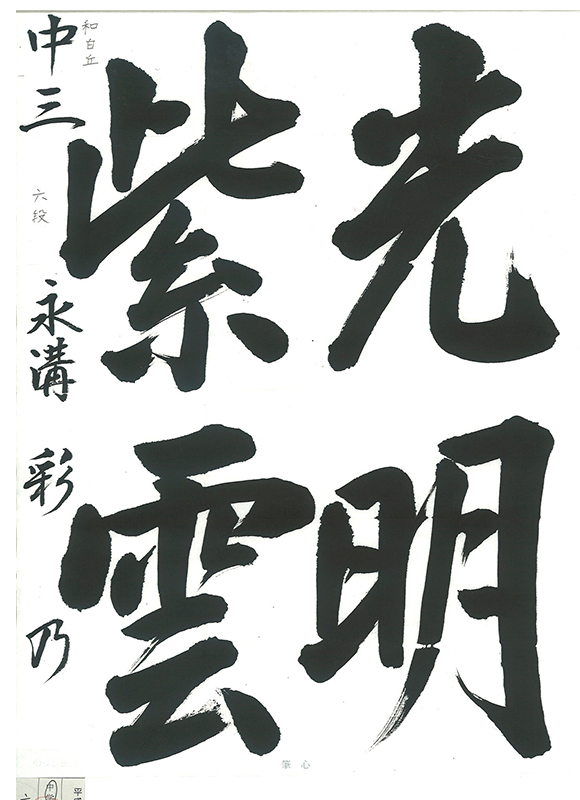 光明
紫雲
和白丘
中三
六段
永溝彩乃
筆心